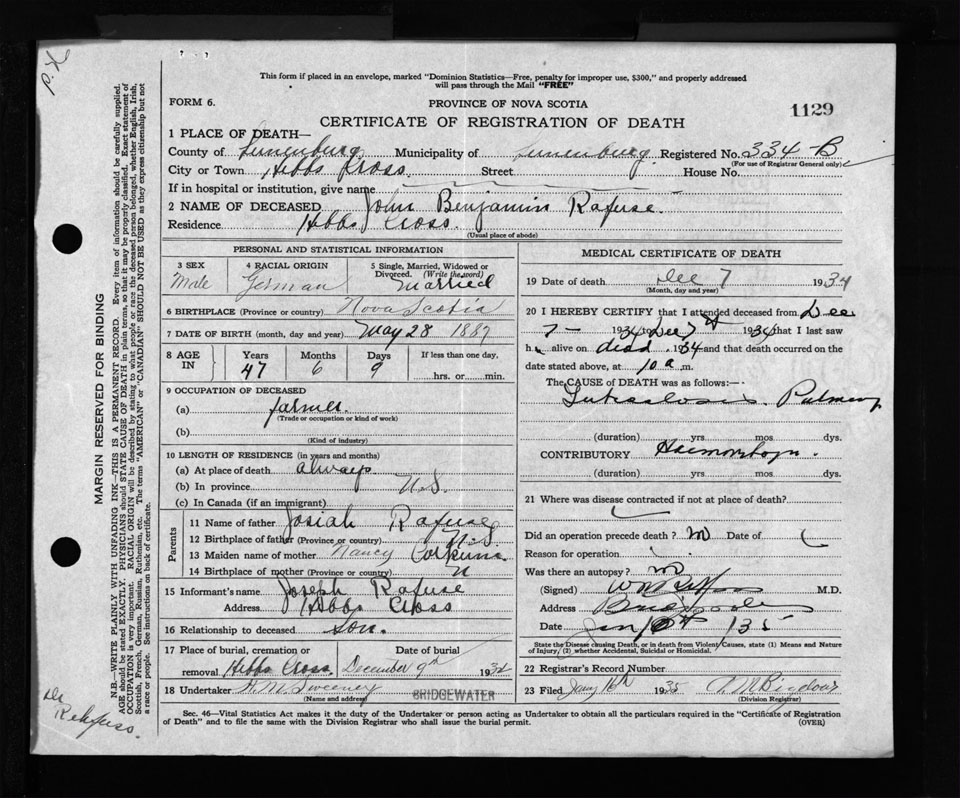 This form if placed in an envelope, marked "Dominion Statistics—Free, penalty for improper use, $300," and properly addressed
will pass through the Mail "FREE"
FORM 6.
PROVINCE OF NOVA SCOTIA
1129
CERTIFICATE OF REGISTRATION OF DEATH
1 PLACE OF DEATH—
County of Lunenburg Municipality of Lunenburg Registered No. 334 B
(For use of Registrar General only)
City or Town Hibbs Cross Street House No.
If in hospital or institution, give name
2 NAME OF DECEASED John Benjamin Rafuse
Residence Hibbs Cross.
(Usual place of abode)
PERSONAL AND STATISTICAL INFORMATION
3 SEX 4 RACIAL ORIGIN 5 Single, Married, Widowed or Divorced. (Write the word)
Male German Married
6 BIRTHPLACE (Province or country) Nova Scotia
7 DATE OF BIRTH (month, day and year) May 28 1887
8 AGE IN Years Months Days If less than one day,
47 6 9 hrs. or min.
9 OCCUPATION OF DECEASED
(a) farmer
(Trade or occupation or kind of work)
(b)
(Kind of industry)
10 LENGTH OF RESIDENCE (in years and months)
(a) At place of death always
(b) In province N.S.
(c) In Canada (if an immigrant)
Parents
11 Name of father Josiah Rafuse
12 Birthplace of father (Province or country) N.S
13 Maiden name of mother Nancy Corkum
14 Birthplace of mother (Province or country)
15 Informant's name Joseph Rafuse
Address Hibbs Cross
16 Relationship to deceased son.
17 Place of burial, cremation or removal Hibbs Cross Date of burial December 9th 1934
18 Undertaker Sweeney BRIDGEWATER
(Name and address)
MEDICAL CERTIFICATE OF DEATH
19 Date of death Dec 7 1934
(Month, day and year)
20 I HEREBY CERTIFY that I attended deceased from Dec
7 - 1934 to Dec 7 1934 that I last saw
h alive on dead 1934 and that death occurred on the
date stated above, at 10 a m.
The CAUSE OF DEATH was as follows:—
Tuberculosis Pulmonary
(duration) yrs mos dys.
CONTRIBUTORY Haemorrhage.
(duration) yrs mos dys.
21 Where was disease contracted if not at place of death?
Did an operation precede death? no Date of
Reason for operation
Was there an autopsy? no
(Signed) M.D.
Address Bridgewater
Date Jan 135
State the Disease causing Death, or in Death from Violent Causes, state (1) Means and Nature
of Injury, and (2) whether Accidental, Suicidal or Homicidal.
22 Registrar's Record Number
23 Filed Jany 16th 1935
(Division Registrar)
Sec. 46—Vital Statistics Act makes it the duty of the Undertaker or person acting as Undertaker to obtain all the particulars required in the "Certificate of Registration
of Death" and to file the same with the Division Registrar who shall issue the burial permit.
(OVER)
MARGIN RESERVED FOR BINDING
N.B.—WRITE PLAINLY WITH UNFADING INK—THIS IS A PERMANENT RECORD. Every item of information should be carefully supplied.
AGE should be stated EXACTLY. PHYSICIANS should STATE CAUSE OF DEATH in plain terms, so that it may be properly classified. Exact statement of
OCCUPATION is very important. RACIAL ORIGIN will be described by stating to what people or race the deceased person belonged, whether English, Irish,
Scottish, French, German, Russian, Ruthenian, etc. The terms "AMERICAN" or "CANADIAN" SHOULD NOT BE USED as they express citizenship but not
a race or people. See instructions on back of certificate.